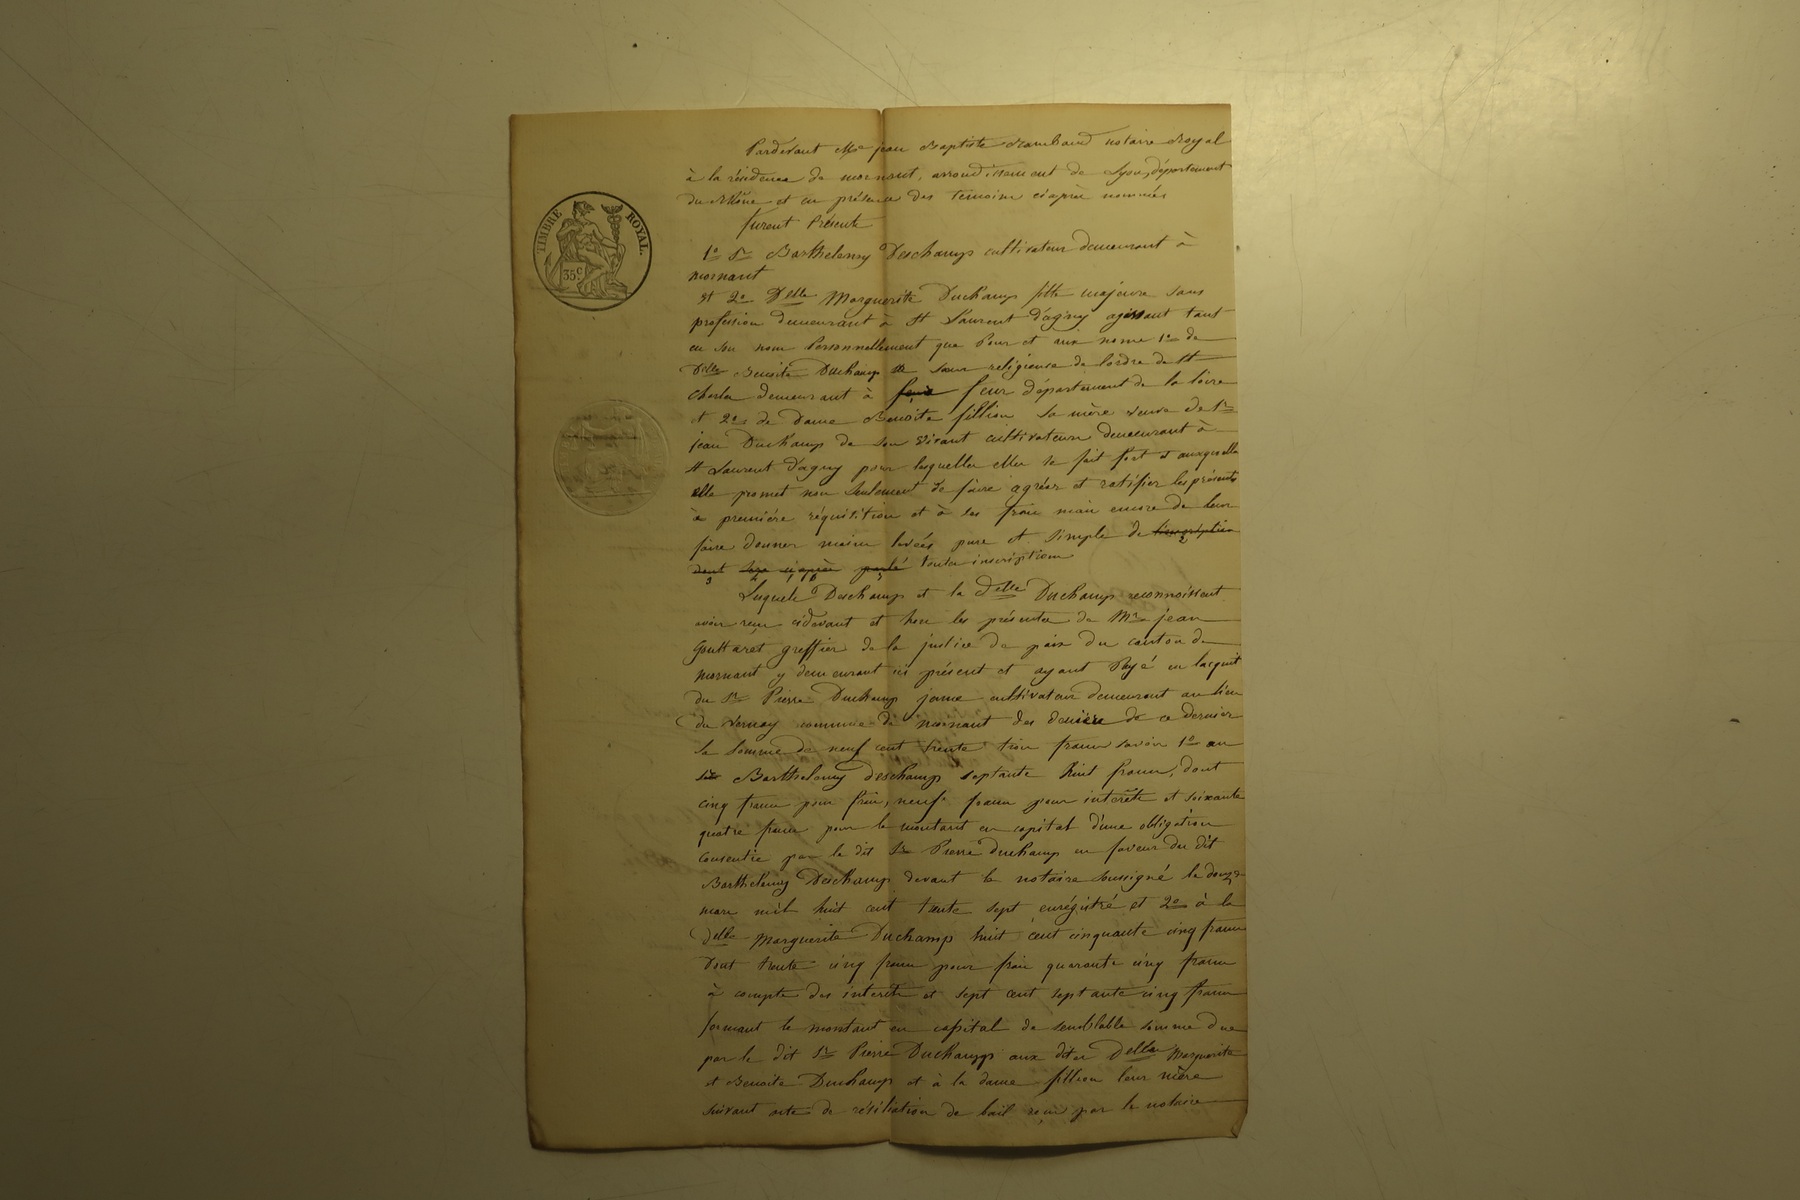 TIMBRE ROYAL.
35c.
Pardevant Me jean Baptiste Rambaud notaire Royal
à la résidence de mornant, arrondissement de Lyon, département
du Rhône et en présence des temoins ciaprès nommés
furent Présents
1o Sr Barthelemy Deschamps cultivateur demeurant à
mornant
et 2o Delle Marguerite Duchamp fille majeure sans
profession demeurant à St Laurent d'agny agissant tant
en son nom Personnellement que Pour et aux noms 1o de
Delle Benoite Duchamp sœur religieuse de l'ordre de St
Charles demeurant à feur département de la loire
et 2o de Dame Benoite fillion sa mère veuve de Sr
jean Duchamp de son vivant cultivateur demeurant à
St Laurent d'agny pour lesquelles elle se fait fort et auxquelles
elle promet non seulement de faire agréer et ratifier les présentes
à première réquisition et à ses frais mais encore de leur
faire donner main levées pure et simple de l'inscription
dont sera ciaprès parlé toutes inscriptions
Lesquels Deschamps et la Delle Duchamp reconnoissent
avoir reçu cidevant et hors les présentes de Mre jean
Gouttaret greffier de la justice de paix du canton de
mornant y demeurant ici présent et ayant Payé en l'acquit
du Sr Pierre Duchamp jeune cultivateur demeurant au lieu
du Vernay commune de mornant des deniers de ce dernier
la somme de neuf cent trente trois francs savoir 1o au
Sr Barthelemy deschamps septante huit francs, dont
cinq francs pour frais, neuf francs pour intérêts et soixante
quatre francs pour le montant en capital d'une obligation
consentie par le dit Sr Pierre Duchamp en faveur du dit
Barthelemy Deschamps devant le notaire soussigné le douze
mars mil huit cent trente sept enrégistré et 2o à la
Delle Marguerite Duchamp huit cent cinquante cinq francs
Dont trente cinq francs pour frais quarante cinq francs
à compte des interêts et sept cent septante cinq francs
formant le montant en capital de semblable somme due
par le dit Sr Pierre Duchamps aux dites Delles Marguerite
et Benoite Duchamp et à la dame fillion leur mère
suivant acte de résiliation de bail reçu par le notaire